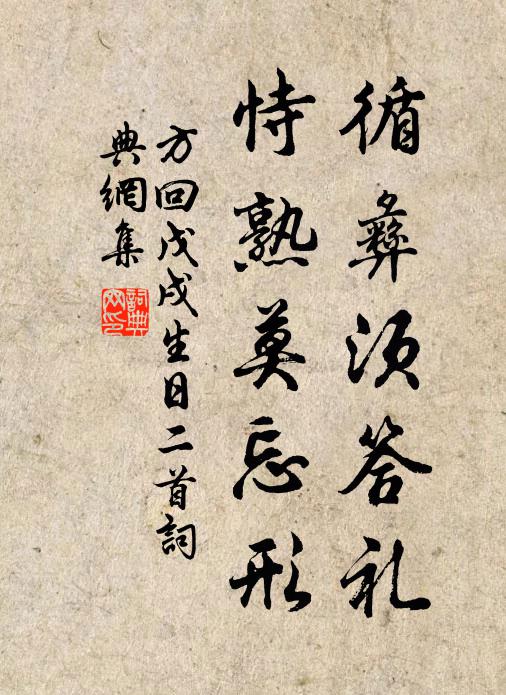 循彝須答礼
恃熟莫忘形
方回戊戌生日二首詞
典網集
詞典
网印